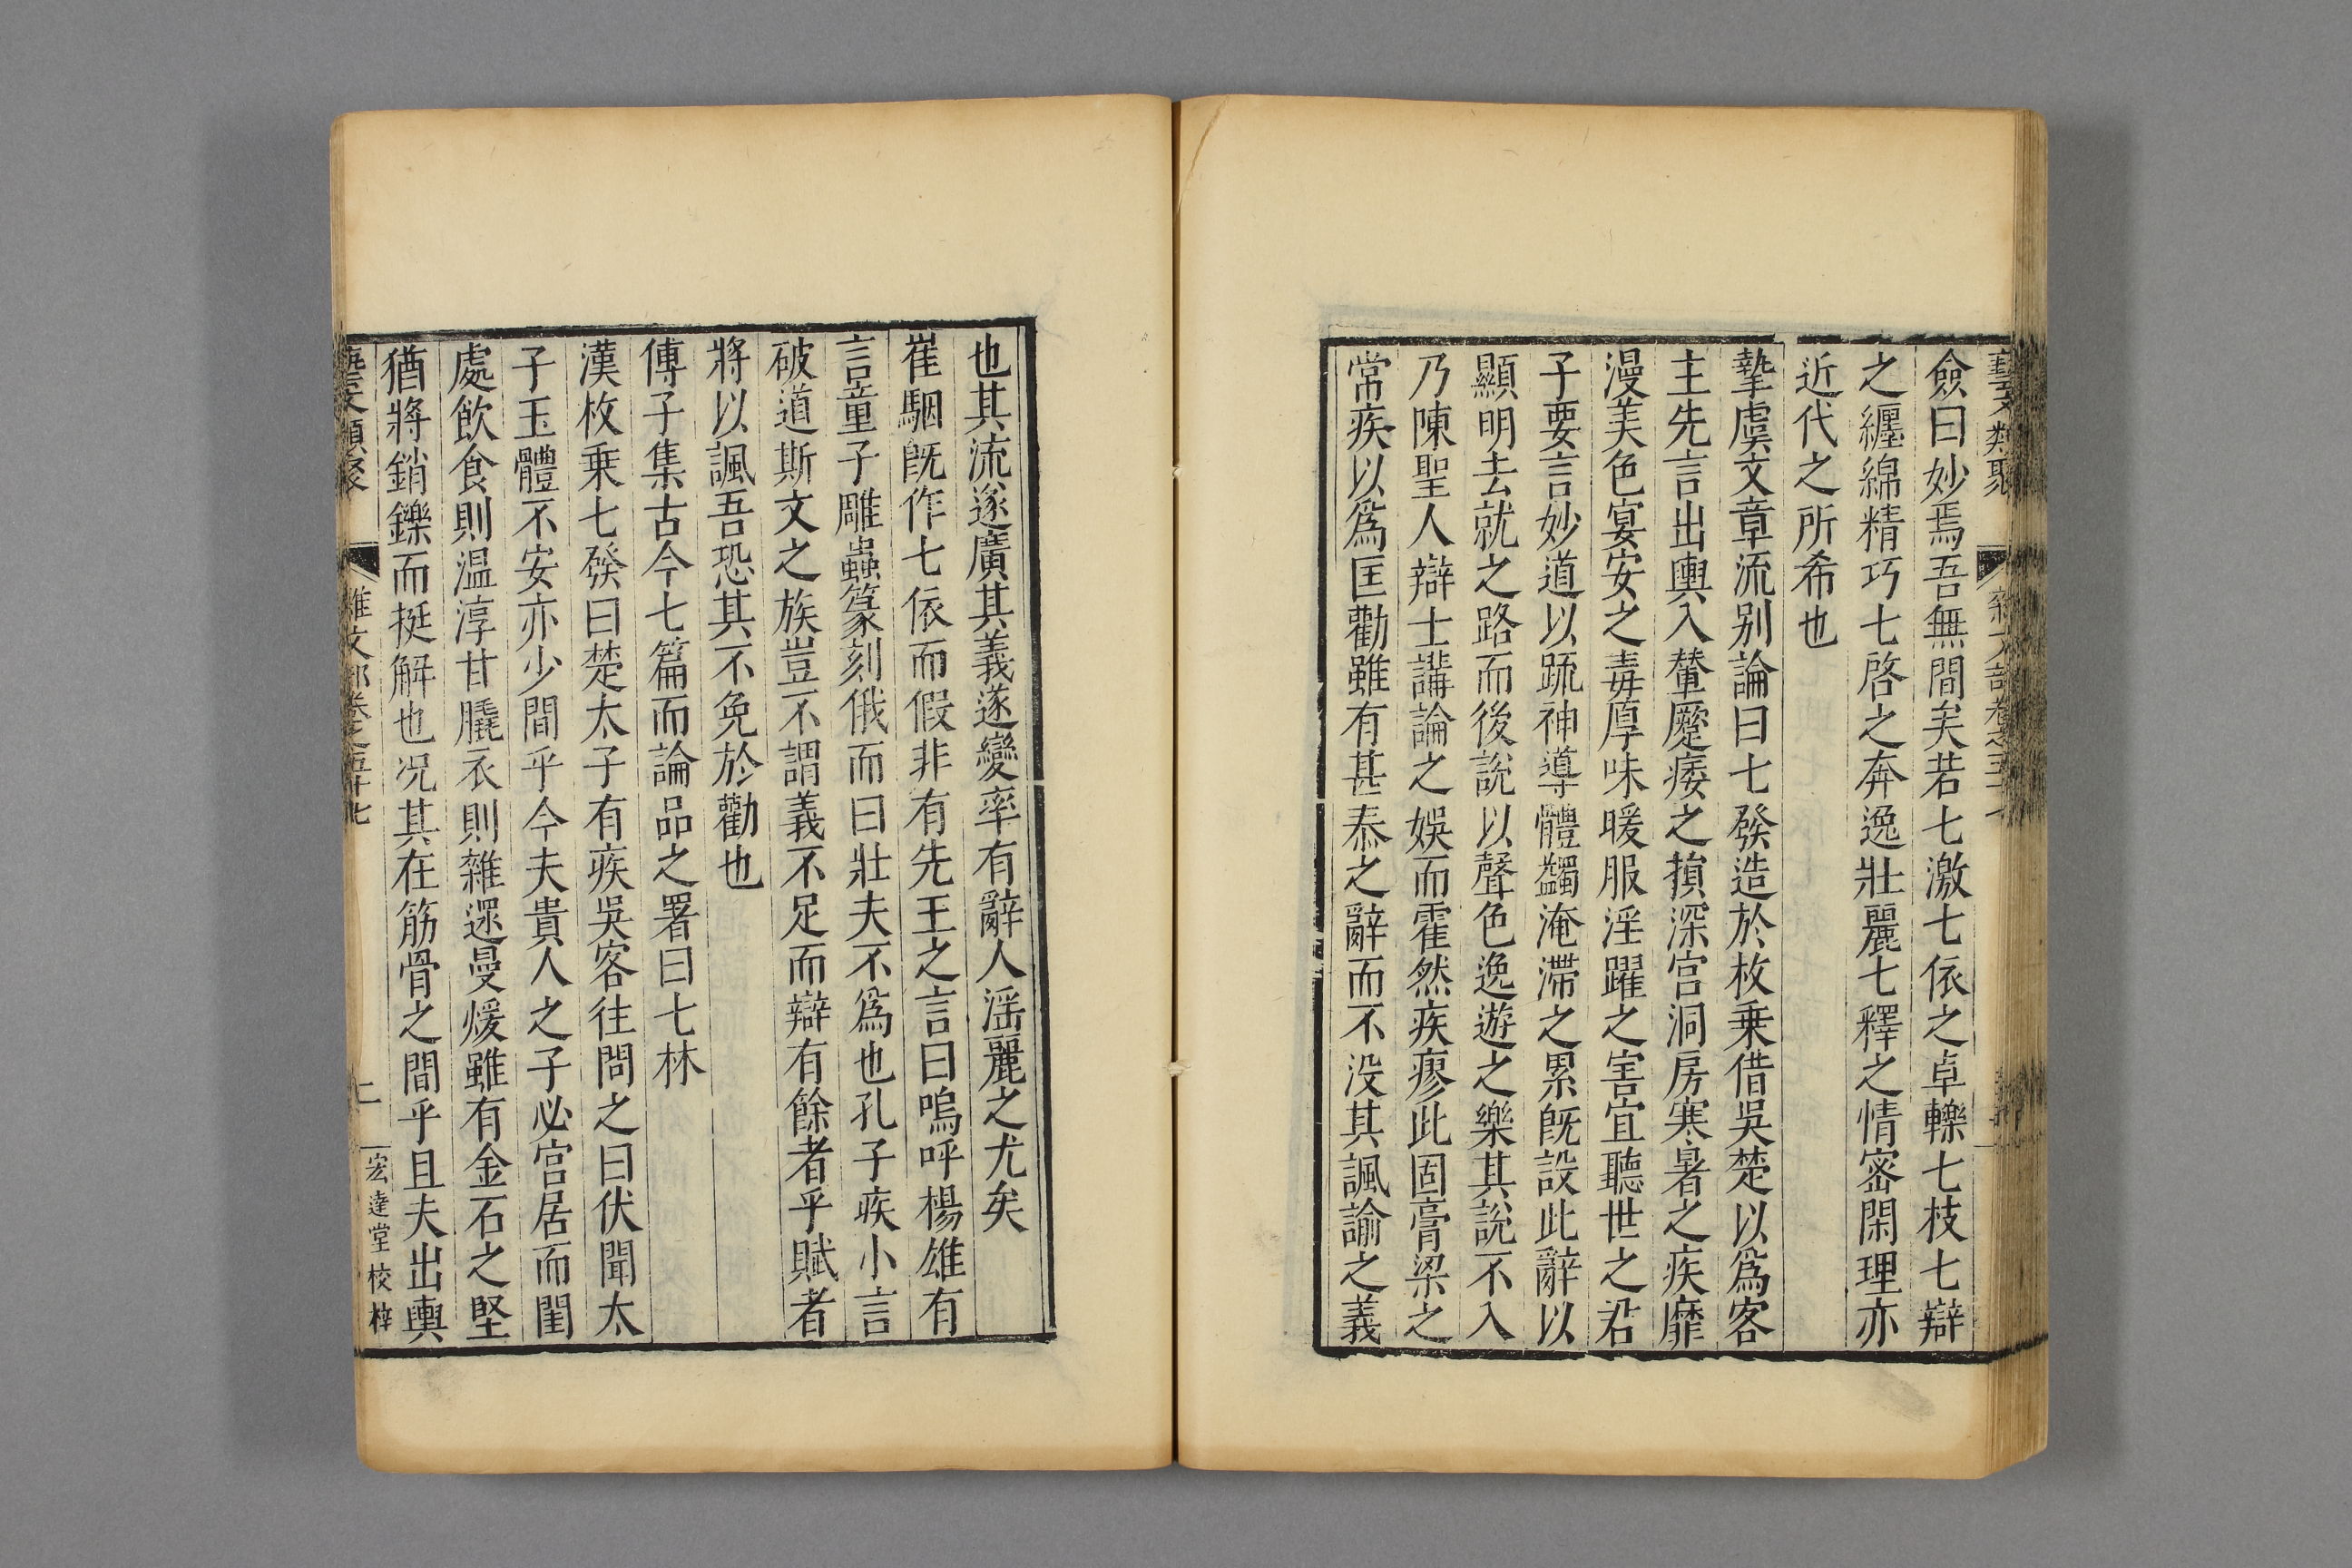 藝文類聚
僉曰妙焉吾無間矣若七激七依之卓轢七枝七辯
之纏綿精巧七啓之奔逸壯麗七釋之情密閑理亦
近代之所希也
摯虞文章流别論曰七發造於枚乗借吳楚以爲客
主先言出輿入輦蹷痿之損深宫洞房寒暑之疾靡
漫美色宴安之毒厚味暖服淫躍之害宜聽世之君
子要言妙道以䟽神導體蠲淹滯之累既設此辭以
顯明去就之路而後說以聲色逸遊之樂其說不入
乃陳聖人辯士講論之娛而霍然疾瘳此固膏梁之
常疾以爲匡勸雖有甚泰之辭而不没其諷諭之義
也其流遂廣其義遂變率有辭人淫麗之尤矣
崔駰既作七依而假非有先王之言曰嗚呼楊雄有
言童子雕蟲篆刻俄而曰壯夫不爲也孔子疾小言
破道斯文之族豈不謂義不足而辯有餘者乎賦者
將以諷吾恐其不免於勸也
傅子集古今七篇而論品之署曰七林
漢枚乗七發曰楚太子有疾吳客往問之曰伏聞太
子玉體不安亦少間乎今夫貴人之子必宫居而閨
處飲食則温淳甘膬衣則雜遝曼煖雖有金石之堅
猶將銷鑠而挺解也况其在筋骨之間乎且夫出輿
藝文類聚 雜文部卷之五十七 二 宏達堂校梓